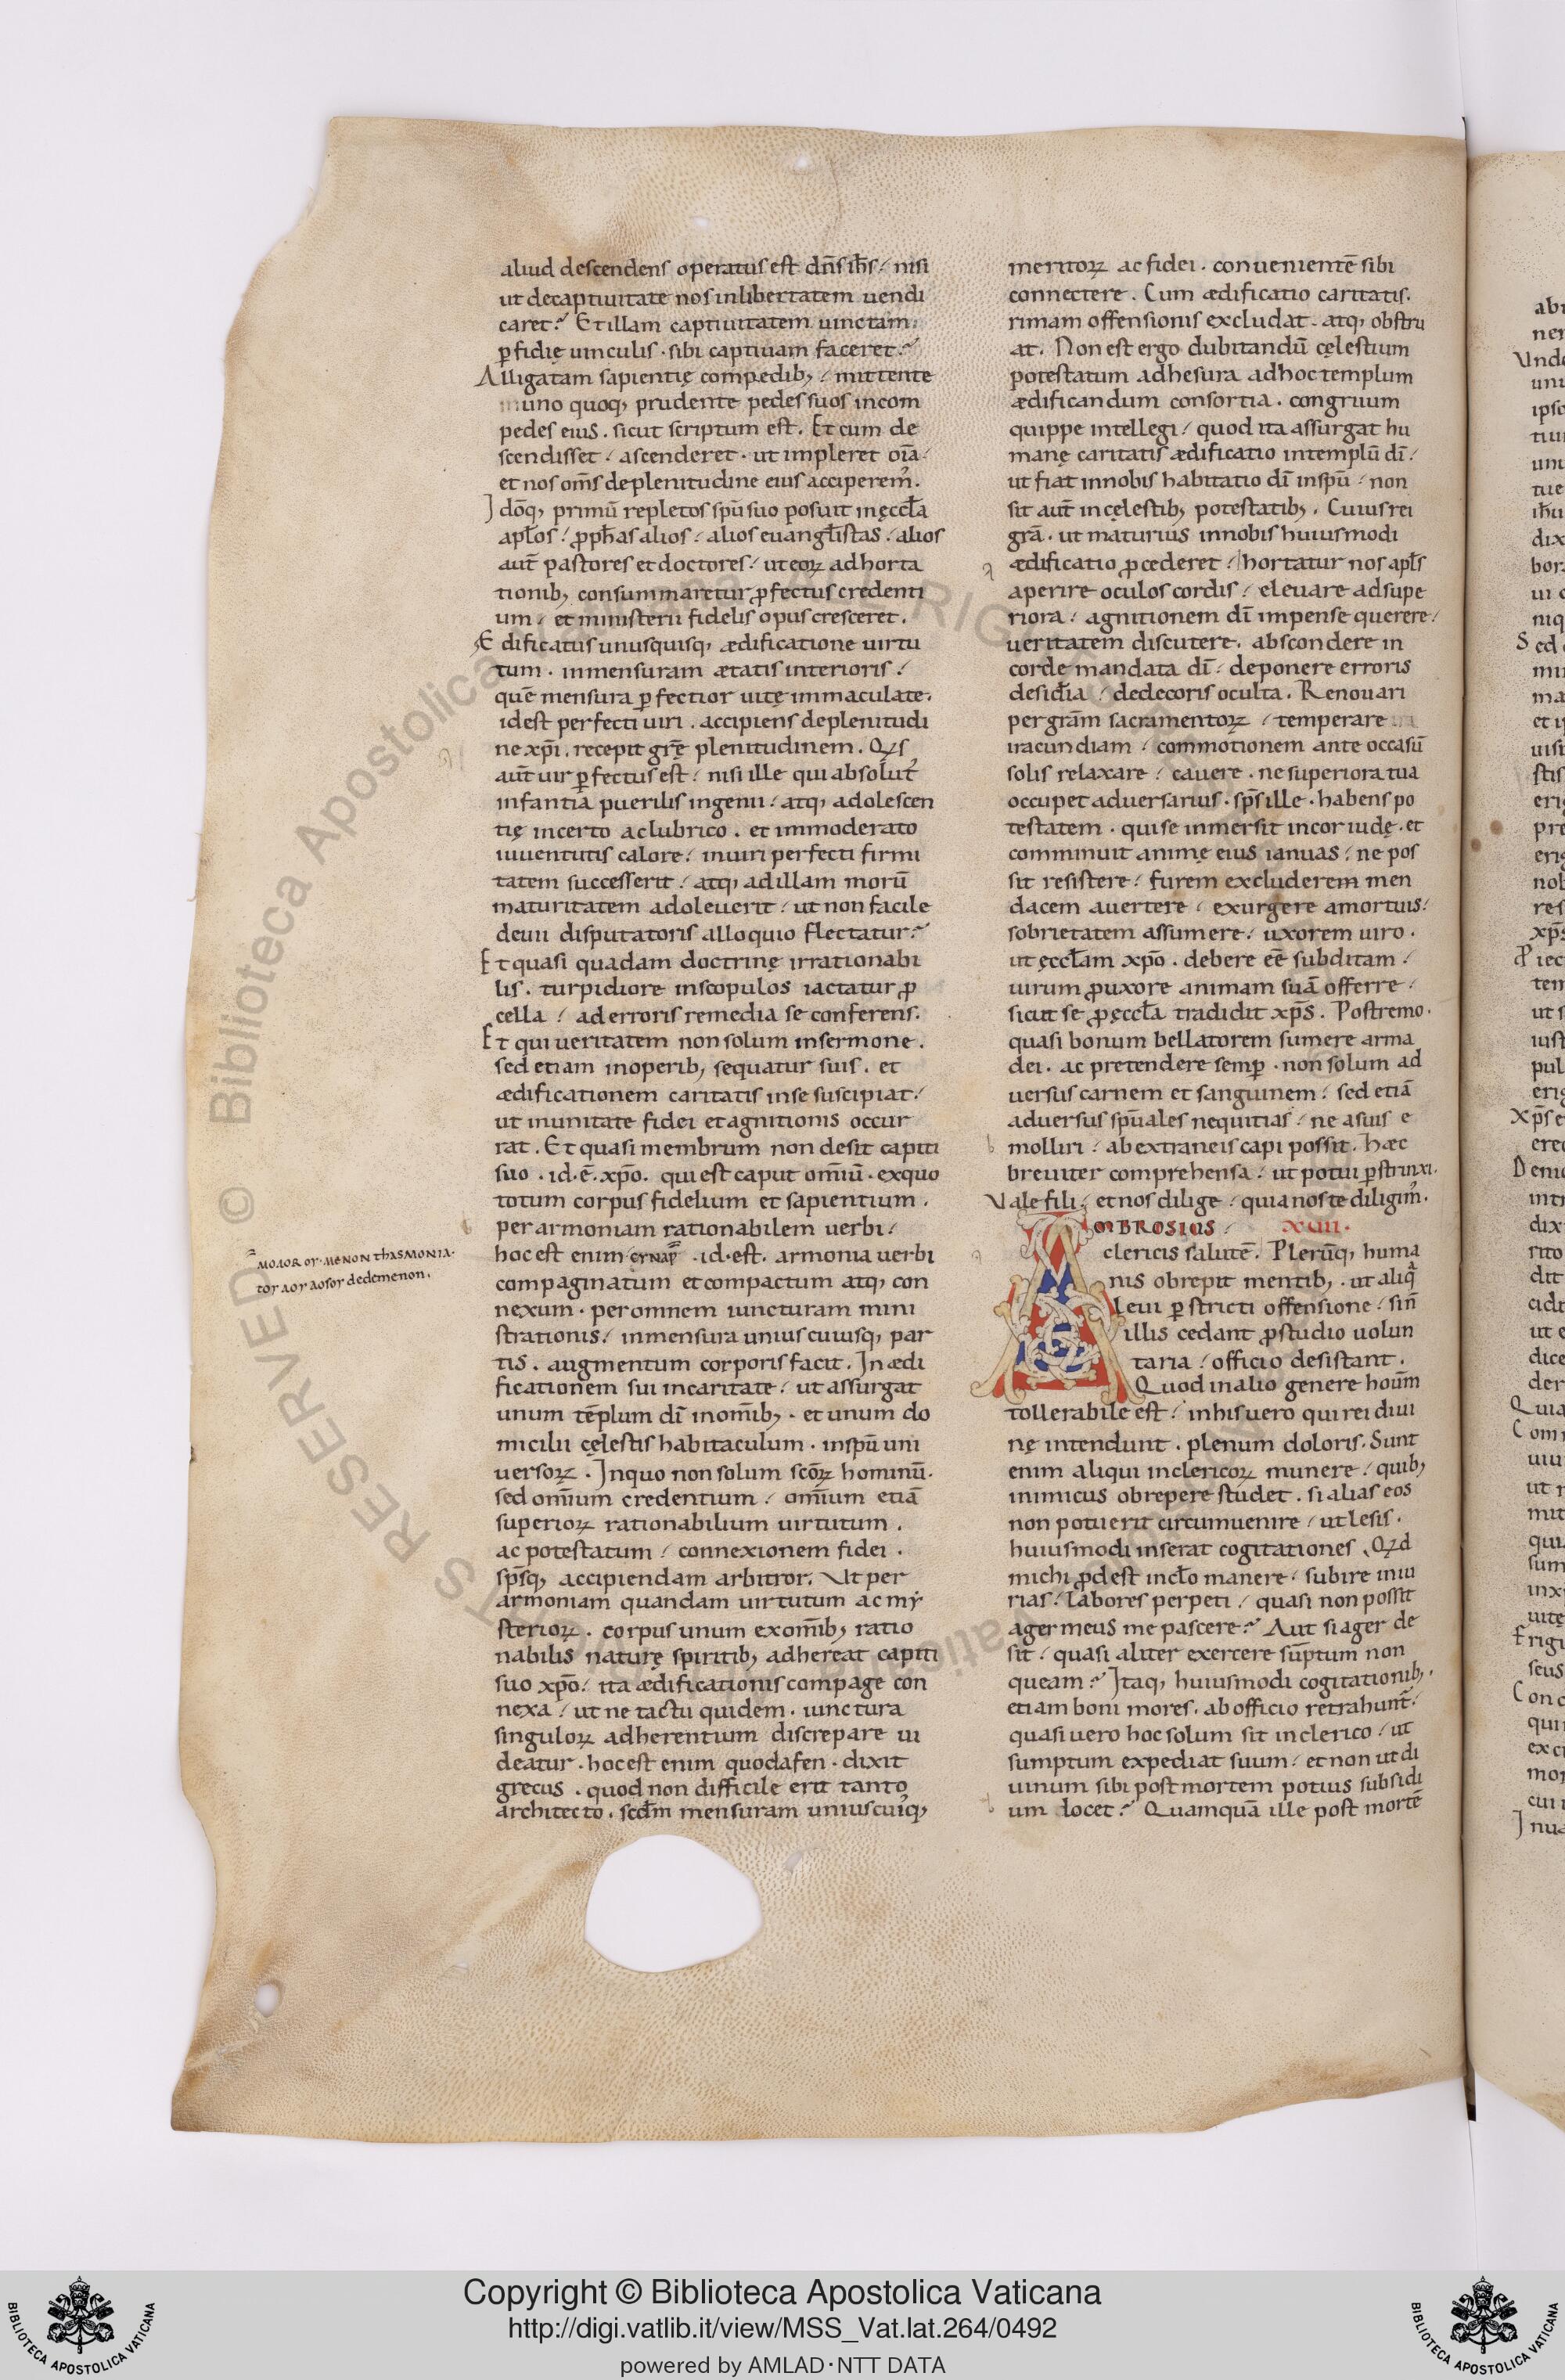 aliud descendens operatus est dn̄s ih̄s / nisi
ut decaptiuitate nos inlibertatem uendi
caret? Et illam captiuitatem uinctam.
ꝑfidię uinculis · sibi captiuam faceret?
Alligatam sapientię compedib; / mittente
uno quoq; prudente pedes suos incom
pedes eius. sicut scriptum est. Et cum de
scendisset / ascenderet · ut impleret oīa /
et nos om̄s deplenitudine eius acciperemꝰ.
Idōq; primū repletos spū suo posuit inęccl̄a
apl̄os / ꝓph̄as alios / alios euangl̄istas / alios
aut̄ pastores et doctores / ut eoꝝ adhorta
tionib; consummaretur ꝓfectus credenti
um / et ministerii fidelis opus cresceret.
Ędificatus unusquisq; ædificatione uirtu
tum · inmensuram ætatis interioris /
quę̄ mensura ꝑfectior uitę immaculate.
id est perfecti uiri. accipiens deplenitudi
ne xp̄i. recepit grę̄ plenitudinem. Qꝫs
aut̄ uir ꝑfectus est / nisi ille qui absoluit
infantia puerilis ingenii / atq; adolescen
tię incerto aclubrico. et immoderato
iuuentutis calore / inuiri perfecti firmi
tatem successerit / atq; adillam morū
maturitatem adoleuerit / ut non facile
deuii disputatoris alloquio flectatur?
Et quasi quadam doctrinę irrationabi
lis. turpidiore inscopulos iactatur ꝓ
cella / ad erroris remedia se conferens.
Et qui ueritatem non solum insermone.
sed etiam inoperib; sequatur suis. et
ædificationem caritatis inse suscipiat /
ut inunitate fidei et agnitionis occur
rat. Et quasi membrum non desit capiti
suo · id·ē· xp̄o. qui est caput om̄iū · exquo
totum corpus fidelium et sapientium.
per armoniam rationabilem uerbi /
hoc est enim · id·est. armonia uerbi
compaginatum et compactum atq; con
nexum · per omnem iuncturam mini
strationis / inmensura unius cuiusq; par
tis. augmentum corporis facit. In ædi
ficationem sui incaritate / ut assurgat
unum tēplum dī inom̄ib; · et unum do
micilii cęlestis habitaculum · inspū uni
uersoꝝ · Inquo non solum scōꝝ hominū.
sed om̄ium credentium / om̄ium etiā
superioꝝ rationabilium uirtutum.
ac potestatum / connexionem fidei.
sp̄sq; accipiendam arbitror. Ut per
armoniam quandam uirtutum ac mẏ
sterioꝝ. corpus unum exom̄ib; ratio
nabilis naturę spiritib; adhereat capiti
suo xp̄o / ita ædificationis compage con
nexa / ut ne tactu quidem · iunctura
singuloꝝ adherentium discrepare ui
deatur · hoc est enim quodafen · dixit
grecus. quod non difficile erit tanto
architecto. secd̄m mensuram uniuscuiꝰq;
meritoꝝ ac fidei. conuenientē sibi
connectere. Cum ædificatio caritatis.
rimam offensionis excludat. atq; obstru
at. Non est ergo dubitandū cęlestium
potestatum adhesura adhoc templum
ædificandum consortia. congruum
quippe intellegi / quod ita assurgat hu
manę caritatis ædificatio intemplū dī /
ut fiat innobis habitatio dī inspū / non
sit aut̄ incęlestib; potestatib;. Cuius rei
grā. ut maturius innobis huiusmodi
ædificatio ꝓcederet / hortatur nos apl̄s
aperire oculos cordis / eleuare adsupe
riora / agnitionem dī impense querere /
ueritatem discutere. abscondere in
corde mandata dī / deponere erroris
desideria / dedecoris oculta. Renouari
per grām sacramentoꝝ / temperare
iracundiam / commotionem ante occasū
solis relaxare / cauere. ne superiora tua
occupet aduersarius · sp̄s ille · habens po
testatem · qui se inmersit incor iudę. et
comminuit animę eius ianuas / ne pos
sit resistere / furem excluderem men
dacem auertere / exurgere amortuis /
sobrietatem assumere / uxorem uiro.
ut ęccl̄am xp̄o. debere eē subditam /
uirum ꝓuxore animam suā offerre /
sicut se ꝓęccl̄a tradidit xp̄s. Postremo.
quasi bonum bellatorem sumere arma
dei. ac pretendere semꝑ · non solum ad
uersus carnem et sanguinem / sed etiā
aduersus spūales nequitias / ne asuis e
molliri / ab extraneis capi possit. hæc
breuiter comprehensa / ut potui ꝑstrinxi.
Vale fili / et nos dilige / quia nos te diligimꝰ.
AMBROSIUS / XVII.
clericis salutē. Plerūq; huma
nis obrepit mentib; · ut aliqͣ
leui ꝑstricti offensione / sin̄
illis cedant ꝓstudio uolun
taria / officio desistant.
Quod inalio genere hoūm
tollerabile est / inhis uero qui rei diui
nę intendunt. plenum doloris. Sunt
enim aliqui inclericoꝝ munere / quib;
inimicus obrepere studet. si alias eos
non potuerit circumuenire / ut lesis.
huiusmodi inserat cogitationes. Qꝫd
michi ꝓdest incl̄o manere / subire iniu
rias / labores perpeti / quasi non possit
ager meus me pascere? Aut si ager de
sit / quasi aliter exercere sūptum non
queam? Itaq; huiusmodi cogitationib;.
etiam boni mores. ab officio retrahunt̄ /
quasi uero hoc solum sit inclerico / ut
sumptum expediat suum / et non ut di
uinum sibi post mortem potius subsidi
um locet? Quamquā ille post mortē
Copyright © Biblioteca Apostolica Vaticana
http://digi.vatlib.it/view/MSS_Vat.lat.264/0492
powered by AMLAD·NTT DATA
BIBLIOTECA APOSTOLICA VATICANA
BIBLIOTECA APOSTOLICA VATICANA